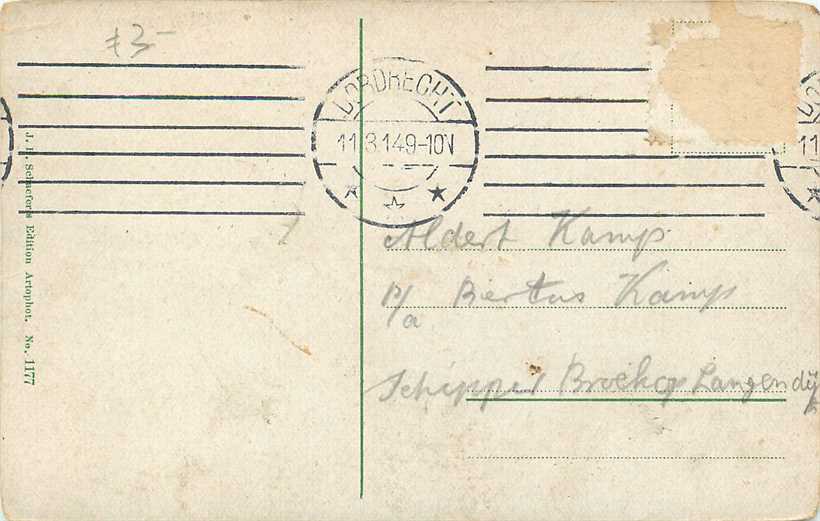 f3-
DORDRECHT
11.3.14 9-10V
DO
11
J. H. Schaefer's Edition Artophot. No. 1177
Aldert Kamp
P/a Bertus Kamp
Schipper Broek op Langendijk